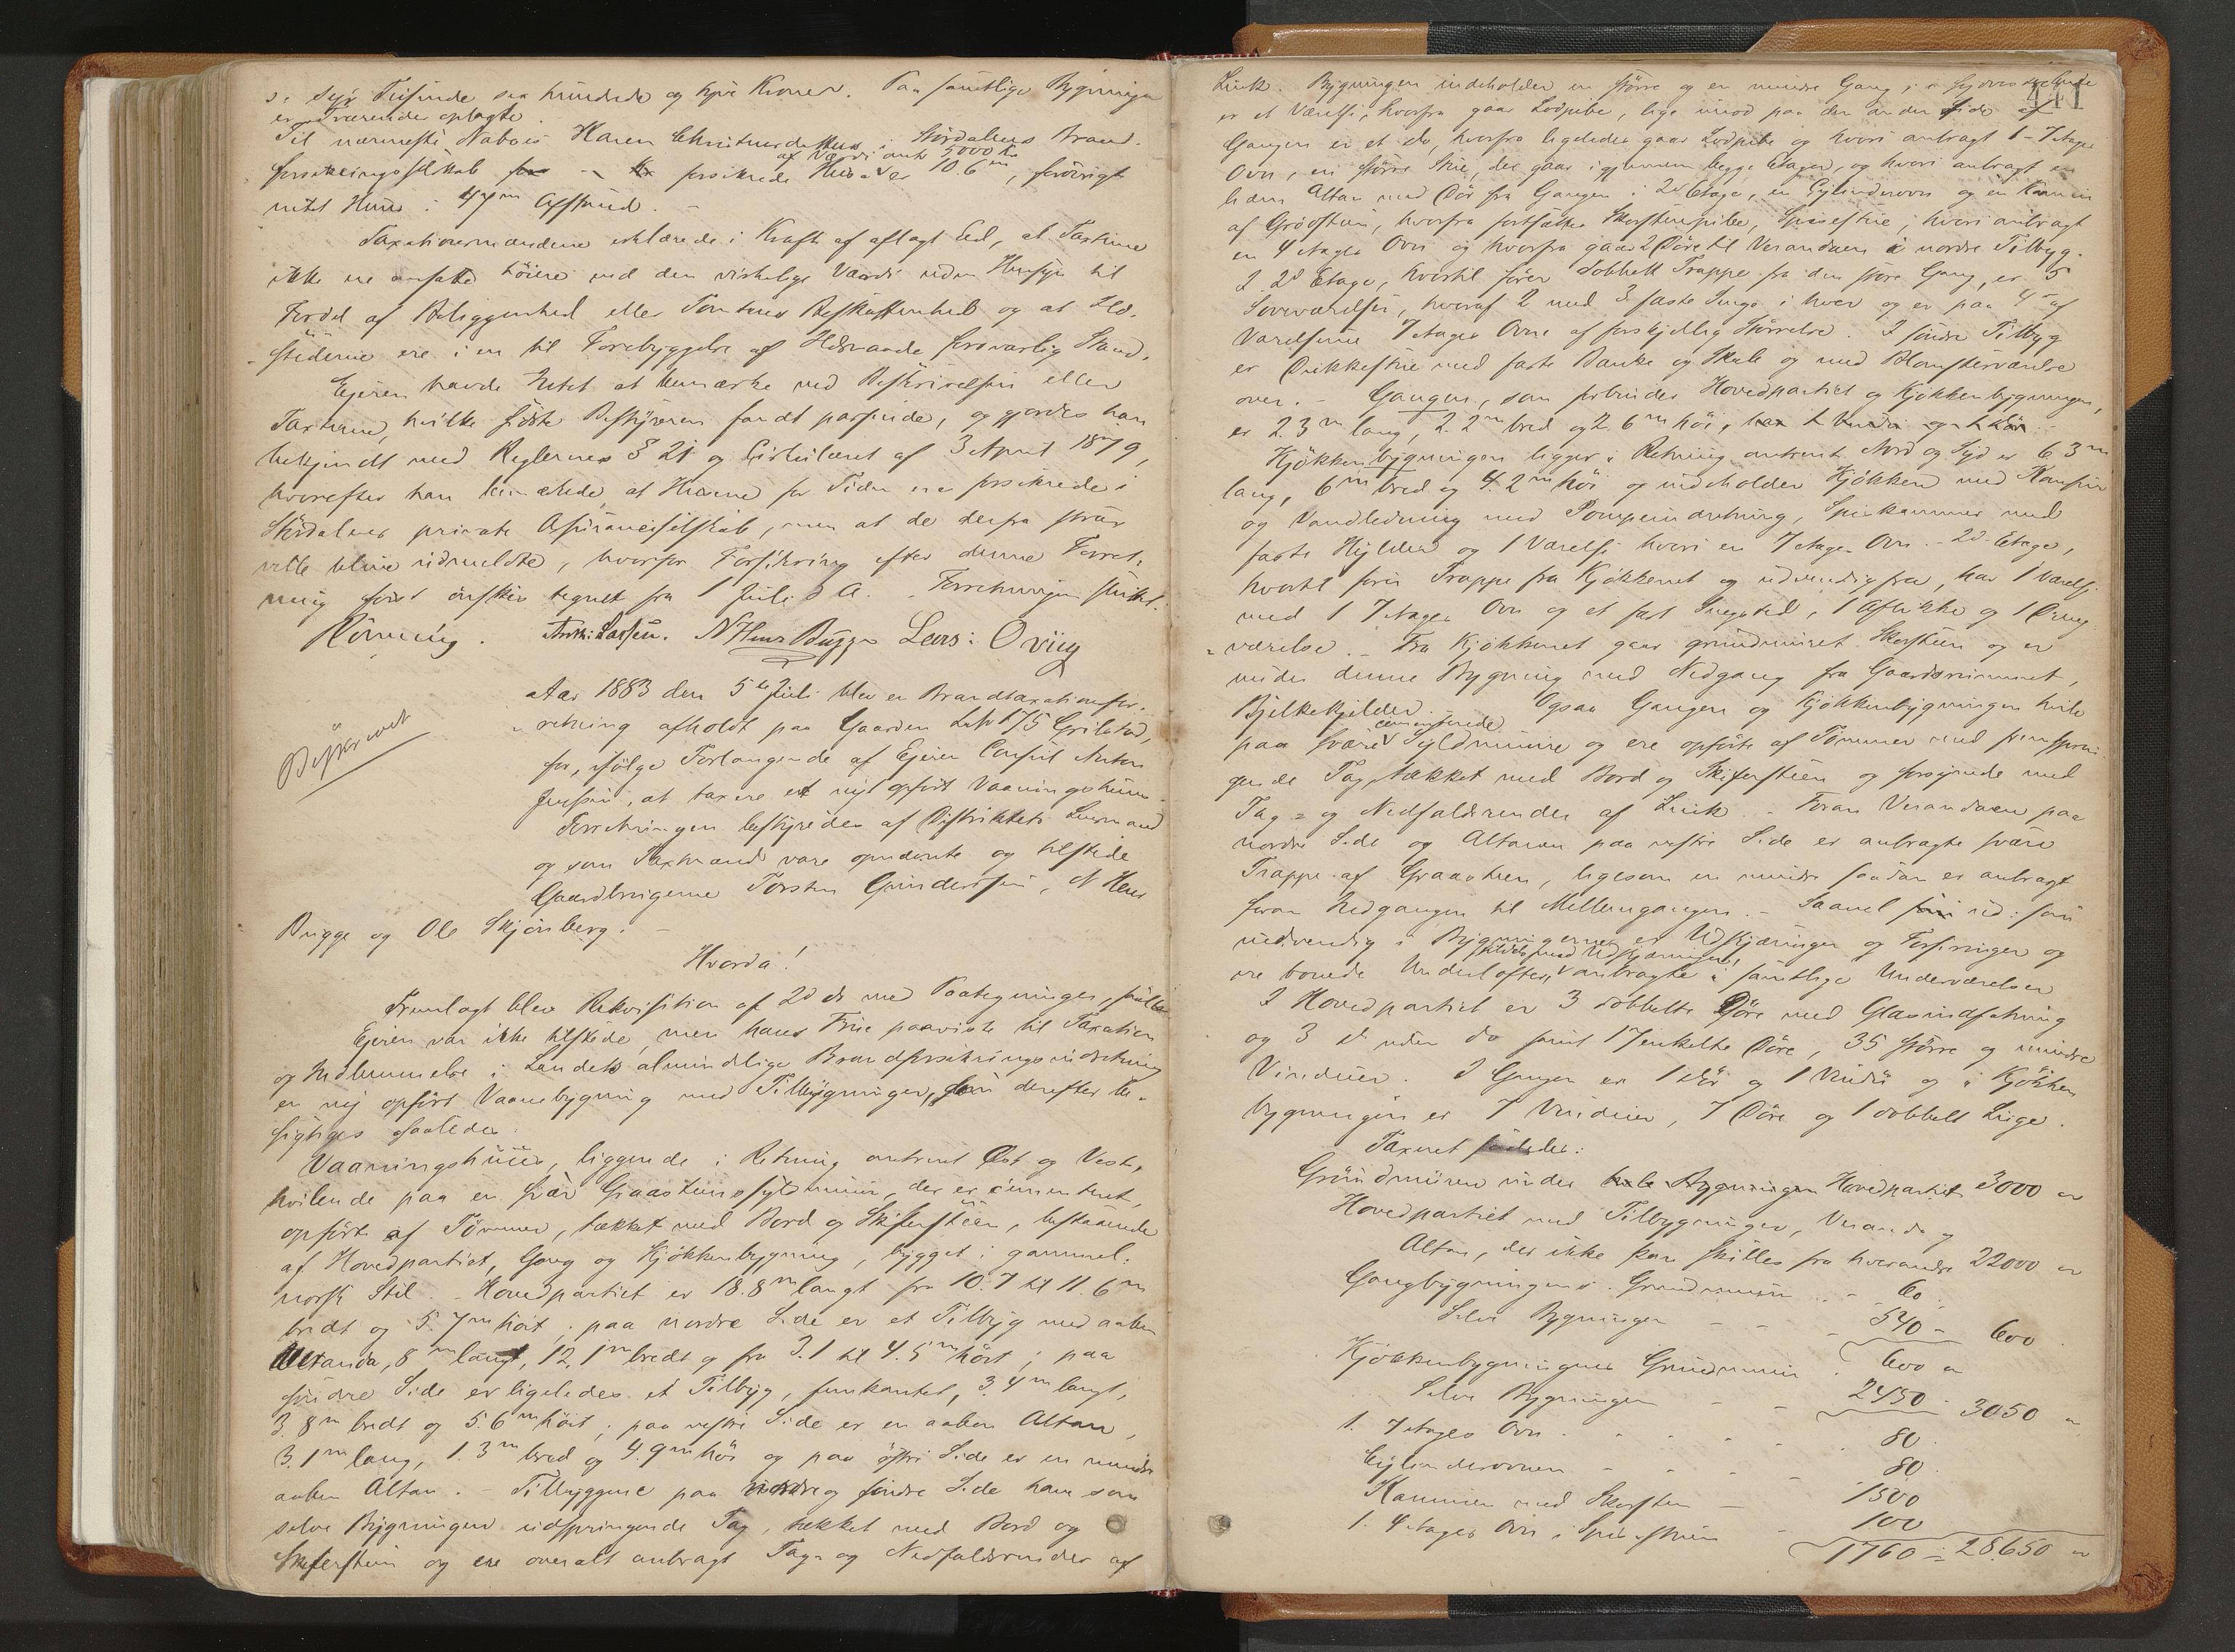 syv Tusinde sex hundrede og tyve Kroner. Paa samtlige Bygninger
er Tværender oplagte.
Til nærmeste Nabois Haren Christensdatters i Stördalens Brand-
forsikringsselskab for af Værdi omtr 5000 Kr forsikrede Huse er 10.6 m, forövrigt
intet Huus i 47 m Afstand. -
Taxationsmændene erklærede i Kraft af aflagt Eed, at Taxterne
ikke ere ansatte höiere end den virkelige Værdi uden Hensyn til
Fordel af Beliggenhed eller Tomtens Beskaffenhed og at Ild-
stederne ere i en til Forebyggelse af Ildsvaade forsvarlig Stand.
Ejeren havde Intet at bemærke ved Beskrivelsen eller
Taxterne, hvilke sidste Bestyreren fandt passende, og gjordes han
bekjendt med Reglernes § 21 og Cirkulæret af 3 April 1879,
hvorefter han bemærkede, at Husene for Tiden ere forsikrede i
Stördalens private Assuranceselskab, men at de derfra strax
ville blive udmeldte, hvorfor Forsikring efter denne Forret-
ning först önskes tegnet fra 1 Juli d A. - Forretningen sluttet.
Rönning. Andr: Larsen. N Hens Bugge Lars: Oving
Beskrevet
Aar 1883 den 5te Juli blev en Brandtaxationsfor-
retning afholdt paa Gaarden L No 175 Grilstad,
for, ifölge Forlangende af Ejeren Consul Anton
Jenssen, at taxere et nyt opfört Vaaningshuus.
Forretningen bestyredes af Distriktets Lensmand
og som Taxtmænd vare opnævnte og tilstede
Gaardbrugerne Torsten Gundersen, N Hens
Bugge og Ole Skjönberg. -
Hvorda!
Fremlagt blev Rekvisition af 2d ds med Paategninger,
Ejeren var ikke tilstede, men hans Frue paaviste til Taxation
og Indlemmelse i Landets almindelige Brandforsikringsindretning
en ny opfört Vaanebygning med Tilbygninger, som derefter be-
sigtiges saaledes:
Vaaningshuus, liggende i Retning omtrent Öst og Vest,
hvilende paa en svær Graastenssyldmuur, der er cementeret,
opfört af Tömmer, tækket med Bord og Skifersteen, bestaaende
af Hovedpartiet, Gang og Kjökkenbygning, bygget i gammel-
norsk Stil. - Hovedpartiet er 18.8 m langt fra 10.7 til 11.6 m
bredt og 5.7 m höit; paa nordre Side er et Tilbyg med aaben
Veranda, 8 m langt, 12.1 m bredt og fra 3.1 til 4.5 m höit; paa
söndre Side er ligeledes et Tilbyg, femkantet, 3.4 m langt,
3.8 m bredt og 5.6 m höit; paa vestre Side er en aaben Altan,
3.1 m lang, 1.3 m bred og 4.9 m höi og paa östre Side er en mindre
aaben Altan. - Tilbyggene paa nordre og söndre Side have som
selve Bygningen udspringende Tag, tækket med Bord og
Skifersteen og ere overalt anbragt Tag- og Nedfaldsrender af
441
Zink. Bygningen indeholder en större og en mindre Gang, i
er et Værelse, hvorfra gaar Lodpibe, lige imod paa den anden Side af
Gangen er et do, hvorfra ligeledes gaar Lodpibe og hvori anbragt 1 - 7 Etages
Ovn, en större Stue, der gaar igjennem begge Etager, og hvori anbragt en
liden Altan med Dör fra Gangen i 2d Etage, en Cylinderovn og en Kamin
af Grötsten, hvorfra fortsættes Skorstenspibe, Spisestue, hvori anbragt
en 4 Etages Ovn og hvorfra gaar 2 Döre til Verandaen i nordre Tilbyg.
I 2d Etage, hvortil förer dobbelt Trappe fra den store Gang, er 5
Soveværelser, hvoraf 2 med 3 faste Senge i hver og er paa 4 af
Værelserne 7 Etages Ovne af forskjellig Störrelse. I söndre Tilbyg
er Drikkestue med faste Bænke og Skab og med Blomsterværelse
over. - Gangen, som forbinder Hovedpartiet og Kjökkenbygningen,
er 2.3 m lang, 2.2 m bred og 2.6 m höi, har 1 Vindu og 1 Dör.
Kjökkenbygningen ligger i Retning omtrent Nord og Syd er 6.3 m
lang, 6 m bred og 4.2 m höi og indeholder Kjökken med Komfur
og Vandledning med Pompeindretning, Spiskammer med
faste Hylder og 1 Værelse hvori en 7 Etages Ovn. - 2d Etage,
hvortil förer Trappe fra Kjökkenet og udvendig fra, har 1 Værelse
med 1 7 Etages Ovn og et fast Sengested, 1 Aflukke og 1 Dreng-
værelse. - Fra Kjökkenet gaar grundmuret Skorsteen og er
under denne Bygning med Nedgang fra Gaardsrummet,
Bjelkekjelder. - Ogsaa Gangen og Kjökkenbygningen hvile
paa svære cementerede Syldmure og ere opförte af Tömmer med fremsprin-
gende Tag, tækket med Bord og Skifersteen og forsynede med
Tag- og Nedfaldsrender af Zink. - Foran Verandaen paa
nordre Side og Altanen paa vestre Side er anbragte svære
Trappe af Graasteen, ligesom en mindre saadan er anbragt
foran Nedgangen til Mellemgangen. - Saavel ud: som
indvendig i Bygningerne er Udskjæringer og Forsiringer og
ere bonede Underlofter, anbragte i samtlige Underværelser
I Hovedpartiet er 3 dobbelte Döre med Glasindfatning
og 3 do uden do samt 17 enkelte Döre, 35 större og mindre
Vinduer. I Gangen er 1 Dör og 1 Vindu og i Kjökken
bygningen er 7 Vinduer, 7 Döre og 1 dobbelt Luge.
Taxeret saaledes:
Grundmuren under hele Bygningen Hovedpartiet 3000 "
Hovedpartiet med Tilbygninger, Veranda og
Altan, der ikke kan skilles fra hverandre 22000 "
Gangbygningens Grundmuur - 60
Selve Bygningen - - 540 - 600
Kjökkenbygningens Grundmuur 600 "
Selve Bygningen - - 2450 - 3050 "
1. 7 Etages Ovn - - - 80
Cylinderovnen - - - 80
Kaminen med Skorsten - 1500
1. 4 Etages Ovn i Spisestuen - 100
1760 = 28650 "